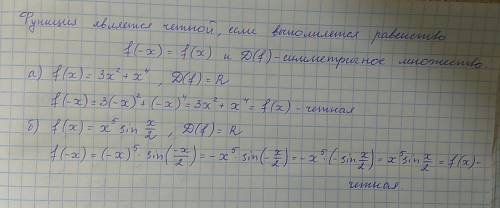 Функция является четной, если выполняется равенство
f(-x) = f(x) и D(f)-симметричное множество.
а) f(x) = 3x² + x⁴, D(f) = R
f(-x) = 3(-x)² + (-x)⁴ = 3x² + x⁴ = f(x) - четная
б) f(x) = x⁵ sin x/2, D(f) = R
f(-x) = (-x)⁵ · sin(-x/2) = -x⁵ · sin(-x/2) = -x⁵ · (-sin x/2) = x⁵ sin x/2 = f(x) -
четная